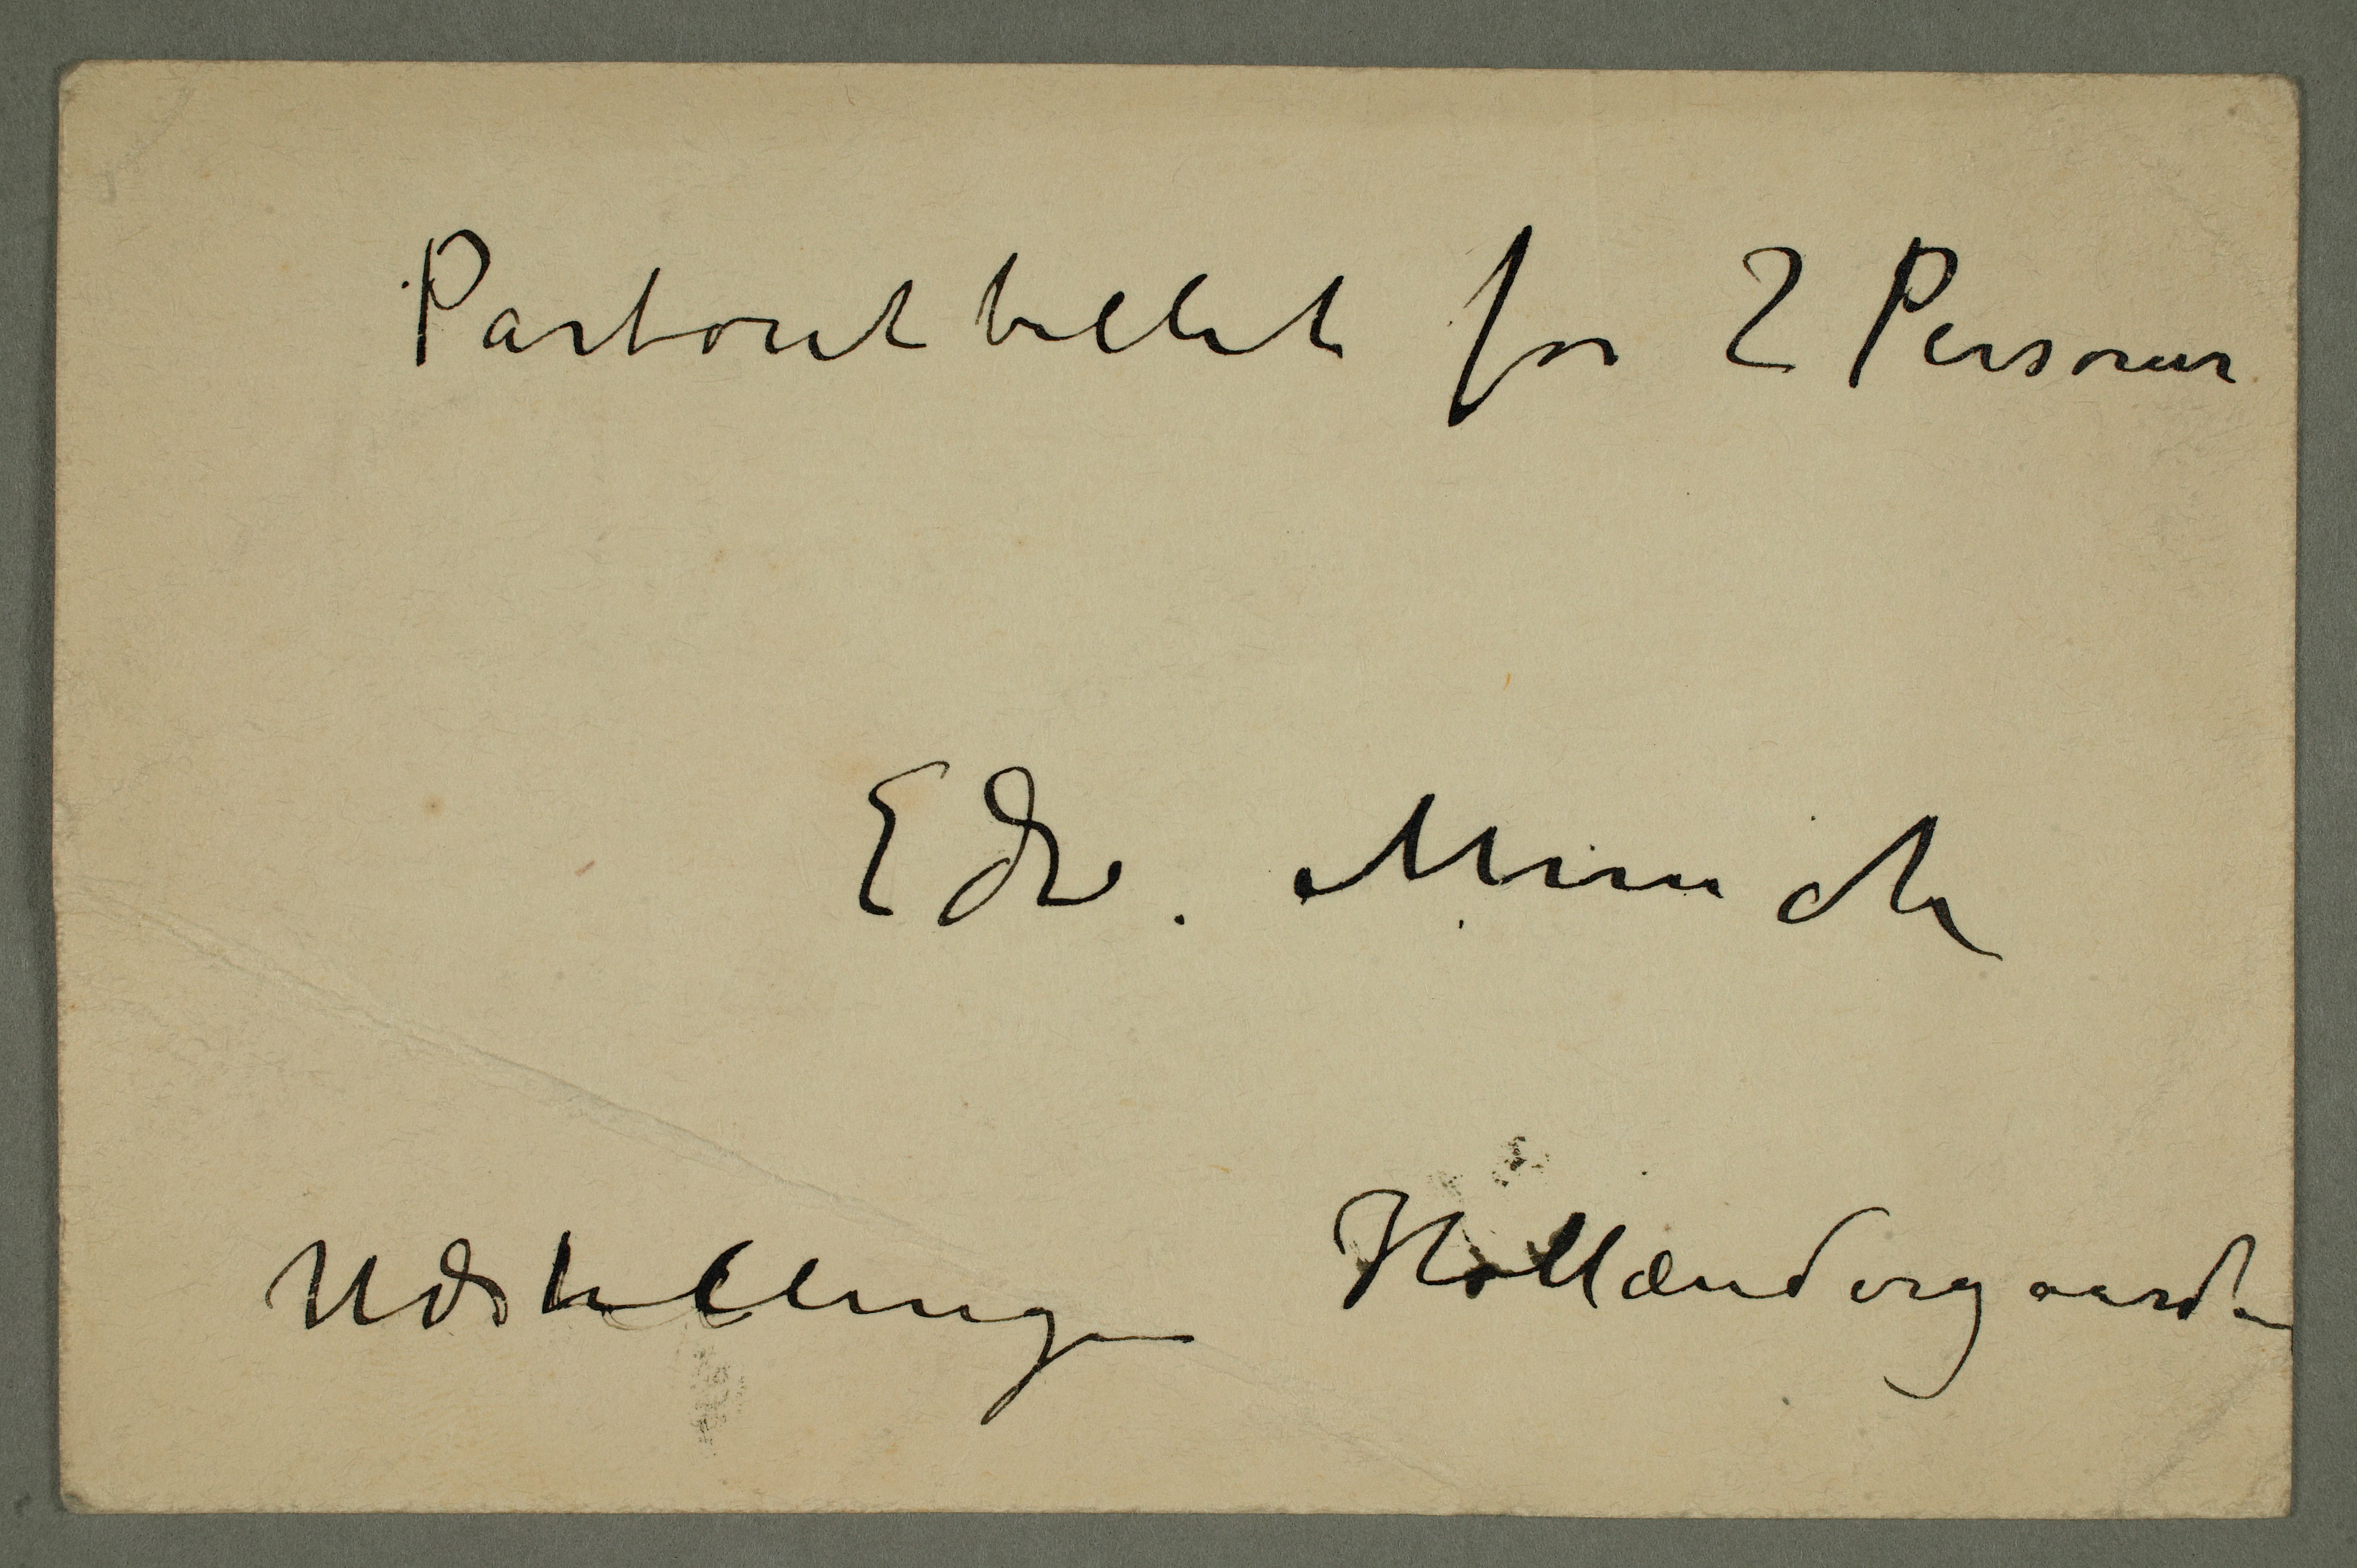 Partoutbillet for 2 Personer
Edv. Munch
Udstillingen Hollændergaarden